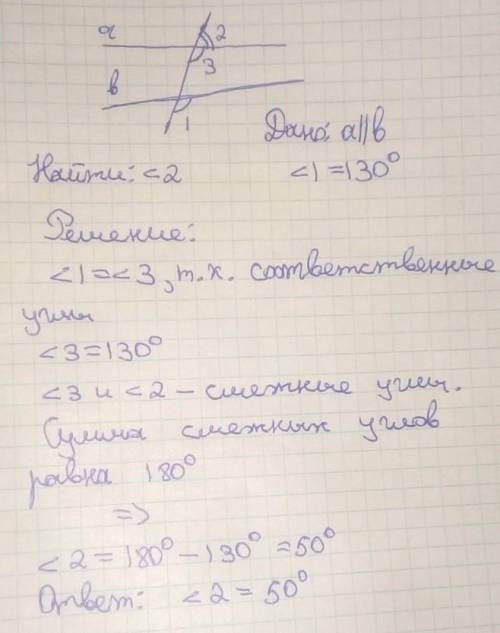 a 2
3
b
1
Дано: a||b
Найти: <2 <1=130°
Решение:
<1=<3, т.к. соответственные
углы
<3=130°
<3 и <2 – смежные углы.
Сумма смежных углов
равна 180°
=>
<2=180°-130°=50°
Ответ: <2=50°